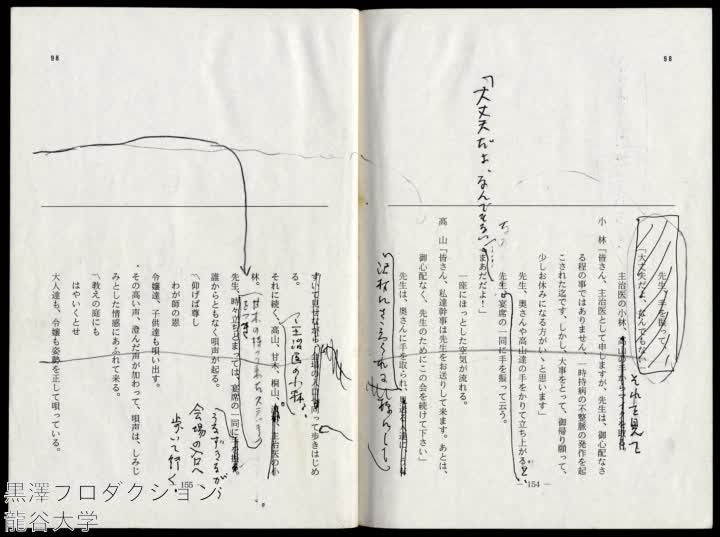 98
先生、手を振って、
「大丈夫だよ、なんでもない」
それを見て
主治医の小林、高山の手からマイクを取る
小 林「皆さん、主治医として申しますが、先生は、御心配なさ
る程の事ではありません。一時持病の不整脈の発作を起
こされた迄です。しかし、大事をとって、御帰り願って、
少しお休みになる方がいゝと思います」
先生、奥さんや高山達の手をかりて立ち上がると、
先生は宴席の一同に手を振って云う。
「大丈夫だよ、なんでもない
まあだだよ!」
一座にほっとした空気が流れる。
高 山「皆さん、私達幹事は先生をお送りして来ます。あとは、
御心配なく、先生のためにこの会を続けて下さい」
先生は、奥さんに手を取られ、
― 154 ―
98
すいて見せながら、会場の入口に向って歩きはじめ
る。
主治医の小林。
それに続く、高山、甘木、桐山、主治医の小
林。
先生、時々立ちどまっては、宴席の一同に手を振る。
誰からともなく唄声が起る。
〽仰げば尊し
わが師の恩
令嬢達、子供達も唄い出す。
その高い声、澄んだ声が加わって、唄声は、しみじ
みとした情感にあふれて来る。
〽教えの庭にも
はやいくとせ
大人達も、令嬢も姿勢を正して唄っている。
会場の外へ
歩いて行く。
― 155 ―
黒澤プロダクション
龍谷大学